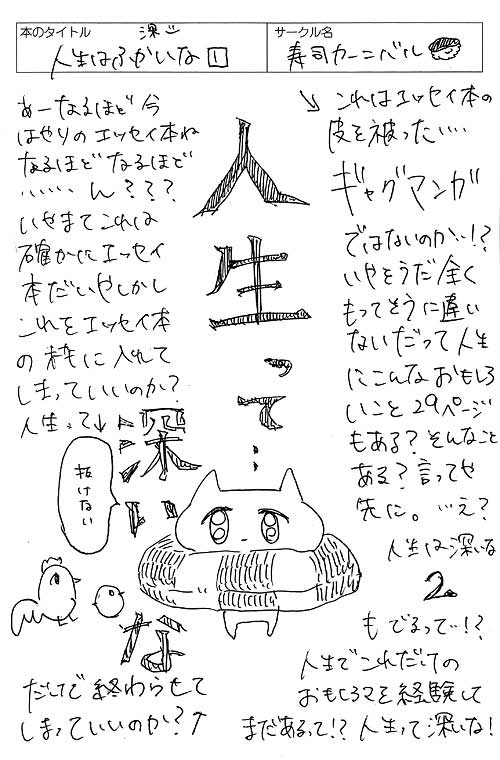 本のタイトル
深い
人生はふかいな1
サークル名
寿司カーニバル
あーなるほど今
はやりのエッセイ本ね
なるほどなるほど
……ん???
いやまてこれは
確かにエッセイ
本だいやしかし
これをエッセイ本
の枠に入れて
しまっていいのか?
人生って↓
人生って…
深いな
だけで終わらせて
しまっていいのか?↑
抜けない
↘これはエッセイ本の
皮を被った…
ギャグマンガ
ではないのか…!?
いやそうだ全く
もってそうに違い
ないだって人生
にこんなおもしろ
いこと29ページ
もある?そんなこと
ある?言ってや
先に。…え?
人生は深いな
2。
もでるって…!?
人生でこれだけの
おもしろマを経験して
まだあるって!?人生って深いな!